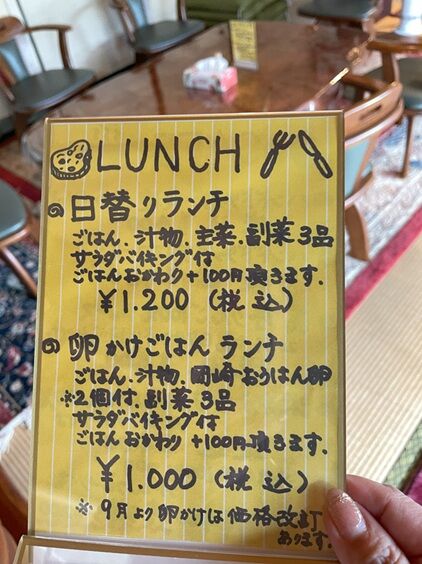 LUNCH
日替りランチ
ごはん、汁物、主菜、副菜3品
サラダバイキング付
ごはんおかわり+100円頂きます.
¥1.200 (税込)
卵かけごはん ランチ
ごはん、汁物、岡崎おうはん卵
※2個付、副菜3品
サラダバイキング付
ごはんおかわり +100円頂きます.
¥1.000 (税込)
※9月より卵かけは価格改訂
あります.